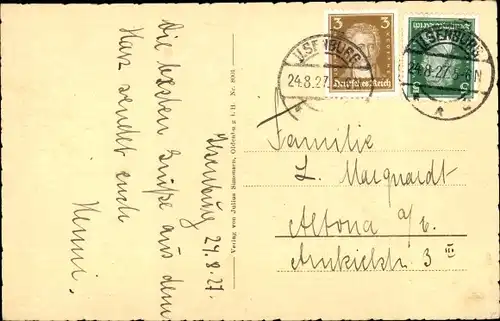 Ilsenburg 24.8.27.
Die besten Grüße aus dem
Harz sendet euch
Henni.
Verlag von Julius Simonsen, Oldenburg i. H. Nr. 8031
3
Deutsches Reich
ILSENBURG
24.8.27.
ILSENBURG
24.8.27.5-6N
5
Familie
L. Marquardt
Altona a/E.
Arnkielstr. 3 III